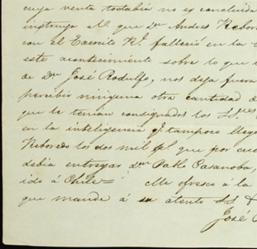 cuya venta todabia no es concluida
instruya al que Dn Andres Rebor
con el Exercito Rl. fallecio en la
este acontecimiento sobre lo que
de Dn José Rodulfo, nos deja fuera
percibir ninguna otra cantidad
que le tenian consignados los Sres
en la inteligencia q. tampoco llego
Reboredo los dos mil ps. que por
debia entregar Dn Pablo Casanoba,
ido á Chile = Me ofresco á la
que manda á su atento
José